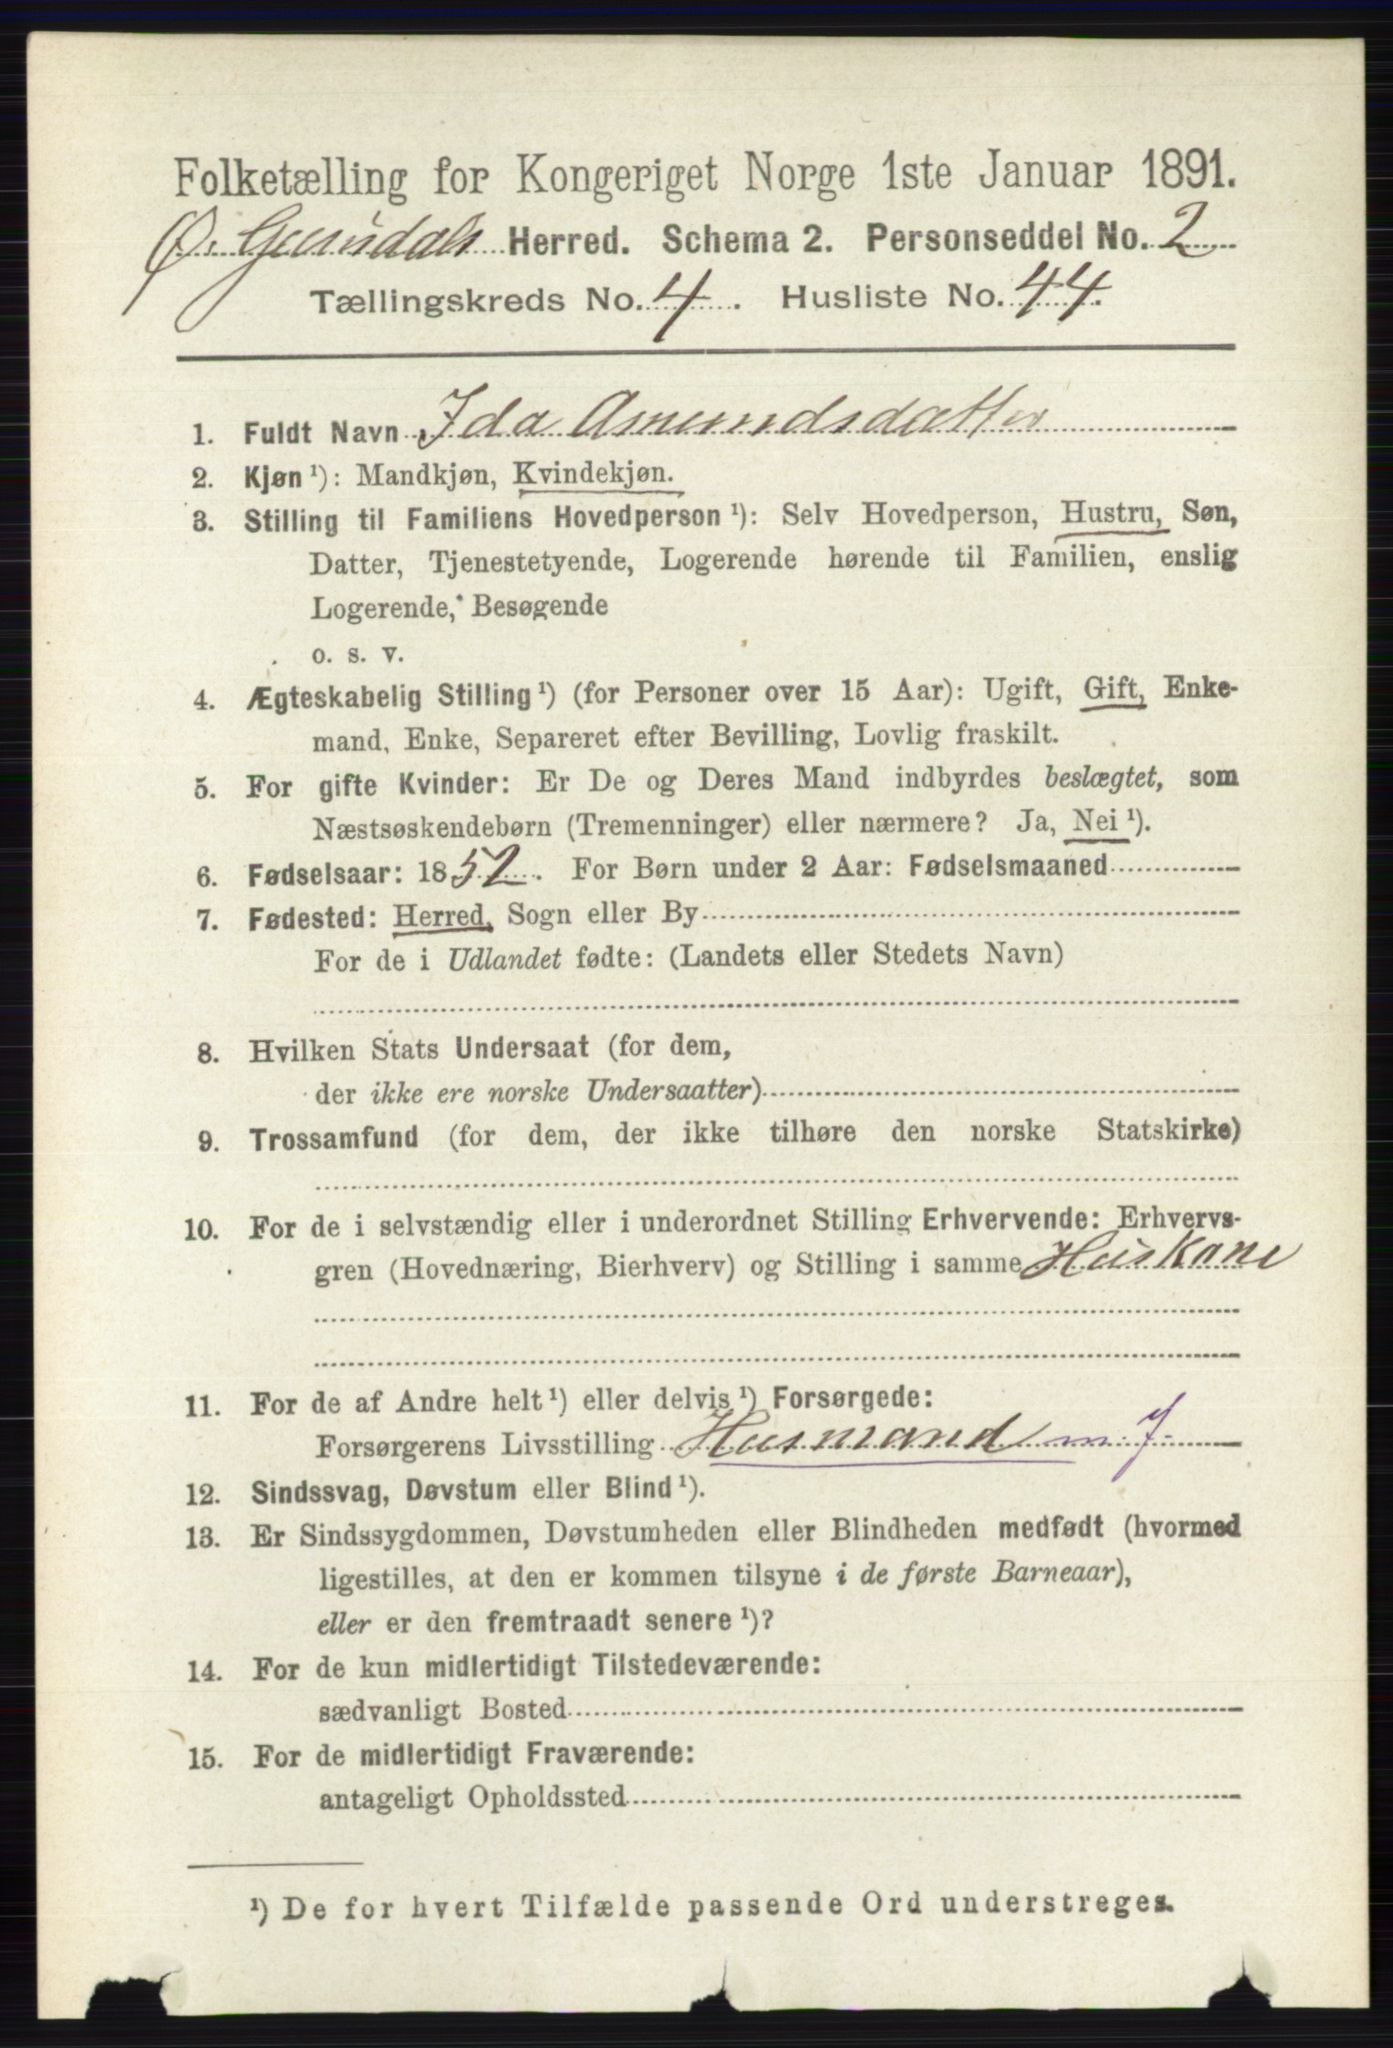 Folketælling for Kongeriget Norge 1ste Januar 1891.
Ø. Gausdals Herred. Schema 2. Personseddel No. 2
Tællingskreds No. 4. Husliste No. 44.
1. Fuldt Navn Ida Amundsdatter
2. Kjøn ¹): Mandkjøn, Kvindekjøn.
3. Stilling til Familiens Hovedperson ¹): Selv Hovedperson, Hustru, Søn,
Datter, Tjenestetyende, Logerende hørende til Familien, enslig
Logerende, Besøgende
o. s. v.
4. Ægteskabelig Stilling ¹) (for Personer over 15 Aar): Ugift, Gift, Enke-
mand, Enke, Separeret efter Bevilling, Lovlig fraskilt.
5. For gifte Kvinder: Er De og Deres Mand indbyrdes beslægtet, som
Næstsøskendebørn (Tremenninger) eller nærmere? Ja, Nei ¹).
6. Fødselsaar: 1852. For Børn under 2 Aar: Fødselsmaaned
7. Fødested: Herred, Sogn eller By
For de i Udlandet fødte: (Landets eller Stedets Navn)
8. Hvilken Stats Undersaat (for dem,
der ikke ere norske Undersaatter)
9. Trossamfund (for dem, der ikke tilhøre den norske Statskirke)
10. For de i selvstændig eller i underordnet Stilling Erhvervende: Erhvervs-
gren (Hovednæring, Bierhverv) og Stilling i samme Huskone
11. For de af Andre helt ¹) eller delvis ¹) Forsørgede:
Forsørgerens Livsstilling Husmand m. J.
12. Sindssvag, Døvstum eller Blind ¹).
13. Er Sindssygdommen, Døvstumheden eller Blindheden medfødt (hvormed
ligestilles, at den er kommen tilsyne i de første Barneaar),
eller er den fremtraadt senere ¹)?
14. For de kun midlertidigt Tilstedeværende:
sædvanligt Bosted
15. For de midlertidigt Fraværende:
antageligt Opholdssted
¹) De for hvert Tilfælde passende Ord understreges.